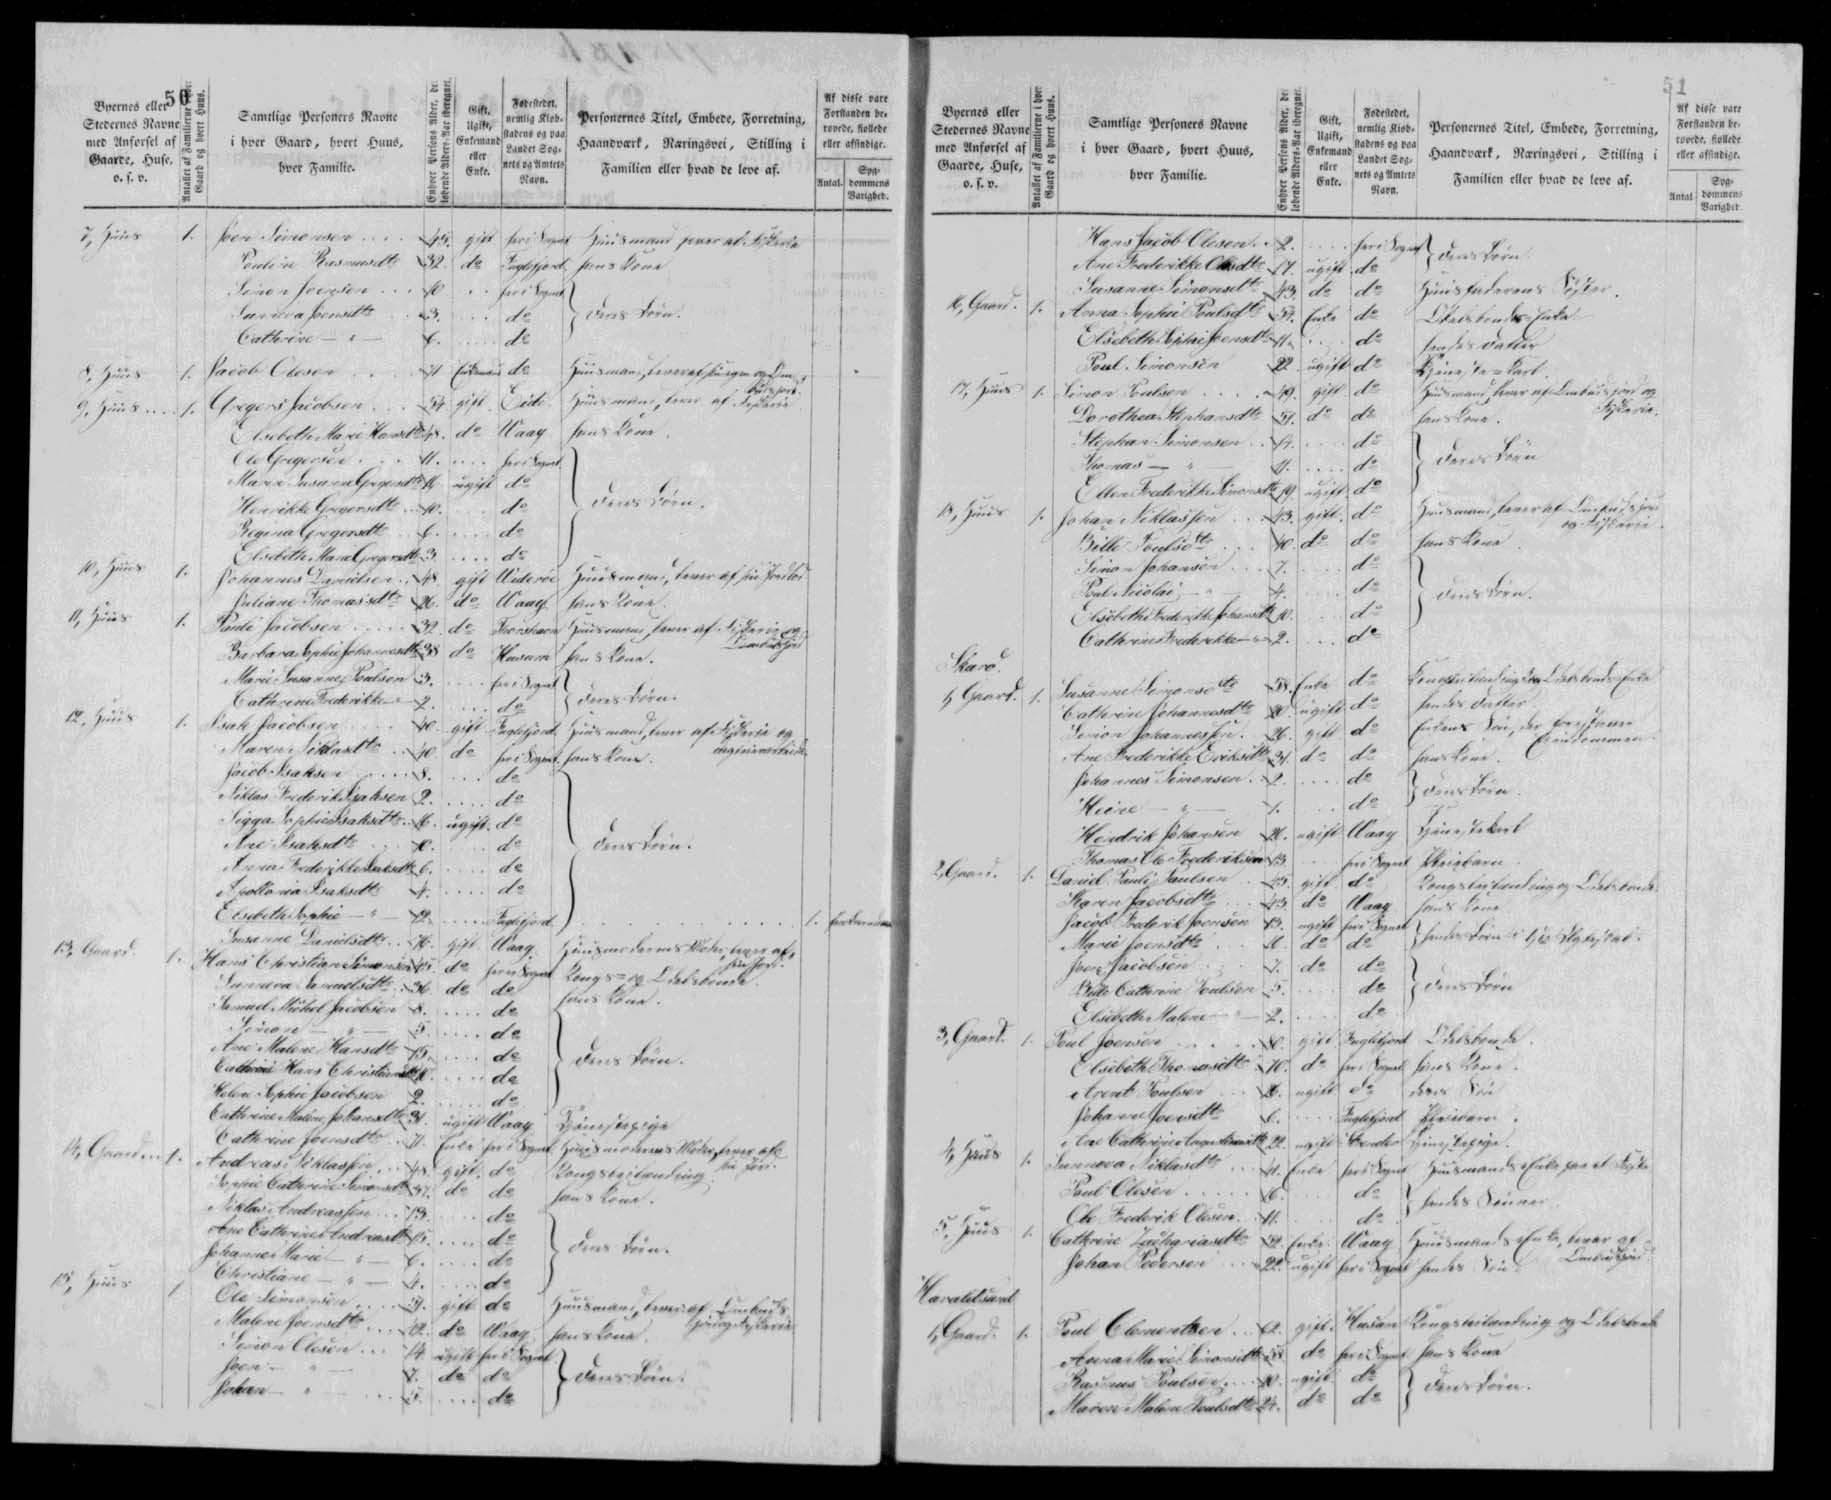 50
Byernes eller Stedernes Navne med Anførsel af Gaarde, Huse, o. s. v.
Antallet af Familierne i hver Gaard og hvert Huus.
Samtlige Personers Navne i hver Gaard, hvert Huus, hver Familie.
Enhver Persons Alder, det løbende Alders-Aar iberegnet.
Gift, Ugift, Enkemand eller Enke.
Fødestedet, nemlig Kiøbstadens og paa Landet Sognets og Amtets Navn.
Personernes Titel, Embede, Forretning, Haandværk, Næringsvei, Stilling i Familien eller hvad de leve af.
Af disse vare Forstanden berovede, fiollede eller afsindige.
Antal.
Sygdommens Varighed.
7, Huus 1. Joen Simonsen 45. gift her i Sognet Huusmand lever af Fiskerie
Pouline Rasmusdtr 32. do Fuglefjord hans Kone
Simon Joensen 10 her i Sognet
Sunneva Joensdtr 3. do deres Børn.
Cathrine — " — 6. do
8, Huus 1. Jacob Olesen 71 Enkemand do Huusmand, lever af
9, Huus 1. Gregers Jacobsen 54 gift Eide Huusmand, lever af Fiskerie
Elsebeth Marie Hansdtr 48. do Waag hans Kone.
Ole Gregersen 11. her i Sognet
Maren Susanne Gregersdtr 16 ugift do
Henrikke Gregersdtr 10. do deres Børn.
Regina Gregersdtr 6. do
Elsebeth Marie Gregersdtr 3 do
10, Huus 1. Johannes Danielsen 48 gift Widerøe Huusmand, lever af sin Jordlod
Juliane Thomasdtr 26. do Waag hans Kone.
11, Huus 1. Pauli Jacobsen 32. do Thorshavn Huusmand, lever af Fiskerie og
Barbara Sophie Johannesdtr 38 do Husum hans Kone.
Marie Susanne Poulsen 3. her i Sognet
Cathrine Frederikke — 2. do deres Børn.
12, Huus 1. Isak Jacobsen 40. gift Fuglefjord Huusmand, lever af Fiskerie og
Maren Niklasdtr 40. do her i Sognet hans Kone.
Jacob Isaksen 8. do
Niklas Frederik Isaksen 2. do
Sigga Sophie Isaksdtr 16. ugift. do
Ane Isaksdtr 10. do deres Børn.
Anna Frederikke Isaksdtr 6. do
Apollonia Isaksdtr 4. do
Elsebeth Sophie — " — 12. Fuglefjord 1.
Susanne Danielsdtr 76. Gift Waag Huusmoderens Moder, lever af sin Jord.
13, Gaard. 1. Hans Christian Simonsen do her i Sognet Kongs- og Odelsbonde.
Sunneva Samuelsdtr 36 do do hans Kone.
Samuel Michel Jacobsen 8. do
Simon — " — 5 do
Ane Malene Hansdtr 15. do deres Børn.
Cathrine Hans Christiansdtr do
Helene Sophie Jacobsen 2. do
Cathrine Malene Johansdtr 31. ugift Waag Tjenestepige
Cathrine Joensdtr 71. Enke her i Sognet Huusmoderens Moder, lever af sin Jord.
14, Gaard 1. Andreas Niklassen 48. gift. do Kongsleilænding
Sophie Cathrine Simonsdtr 37. do do hans Kone.
Niklas Andreassen 13. do
Ane Cathrine Andreasdtr 15. do
Johanne Marie — " — 6. do deres Børn.
Christiane — " — 4. do
15, Huus 1 Ole Simonsen gift do Huusmand, lever af
Malene Joensdtr 42. do Waag hans Kone.
Simon Olesen 14. ugift her i Sognet
Joen — " — 7. do do deres Børn.
Johan — " — 5. do
51
Byernes eller Stedernes Navne med Anførsel af Gaarde, Huse, o. s. v.
Antallet af Familierne i hver Gaard og hvert Huus.
Samtlige Personers Navne i hver Gaard, hvert Huus, hver Familie.
Enhver Persons Alder, det løbende Alders-Aar iberegnet.
Gift, Ugift, Enkemand eller Enke.
Fødestedet, nemlig Kiøbstadens og paa Landet Sognets og Amtets Navn.
Personernes Titel, Embede, Forretning, Haandværk, Næringsvei, Stilling i Familien eller hvad de leve af.
Af disse vare Forstanden berovede, fiollede eller afsindige.
Antal
Sygdommens Varighed.
Hans Jacob Olesen 2. her i Sognet
Ane Frederikke Olesdtr 17. ugift do deres Børn.
Susanne Simonsdtr 43. do do Huusfaderens Søster.
16, Gaard. 1. Anna Sophie Poulsdtr 54. Enke do Odelsbondes Enke
Elsebeth Sophie Joensdtr 11 do hendes Datter
Poul Simonsen 22 ugift do Tjeneste-Karl.
17, Huus 1. Simon Poulsen 49. gift do Huusmand, lever af og Fiskerie.
Dorothea Stephansdtr 51. do do hans Kone.
Stephan Simonsen 14. do
Thomas — " — 11. do deres Børn
Ellen Frederikke Simonsdtr 19. ugift. do
18, Huus 1. Johan Niklassen 43. gift. do Huusmand, lever af og Fiskerie.
Bille Poulsdtr 40. do do hans Kone.
Simon Johansen 7. do
Poul Nicolai — " 4. do deres Børn.
Elsebeth Frederikke Johansdtr 10. do
Cathrine Frederikke — " 2. do
Skarø.
1, Gaard. 1. Susanne Simonsdtr 58. Enke do Kongsleilænding og Odelsbondes Enke
Cathrine Johannesdtr 20. ugift do hendes Datter
Simon Johannessen 26. gift do Enkens Søn, der forestaaer Eiendommen.
Ane Frederikke Eriksdtr 31. do do hans Kone.
Johannes Simonsen 2. do
Heine — " — 1. do deres Børn.
Hendrik Johansen 21. ugift Waag Tjenestekarl
Thomas Ole Frederiksen 13. her i Sognet Pleiebarn.
2, Gaard. 1. Daniel Pauli Paulsen 45. gift do Kongsleilænding og Odelsbonde.
Karen Jacobsdtr 43 do Waag hans Kone
Jacob Frederik Joensen 13. ugift her i Sognet
Marie Joensdtr 16 do do hendes Børn i
Joen Jacobsen 7. do do
Bille Cathrine Poulsen 5. do deres Børn
Elsebeth Malene — " 2. do
3, Gaard. 1. Poul Joensen 80. gift Fuglefjord Odelsbonde.
Elsebeth Thomasdtr 70. do her i Sognet hans Kone.
Arent Poulsen 26. ugift do deres Søn
Johanne Joensdtr 6. Fuglefjord Pleiebarn.
Ane Cathrine 22. ugift Tjenestepige.
4, Huus 1. Sunneva Niklasdtr 41. Enke her i Sognet Huusmands Enke
Poul Olesen 16. do
Ole Frederik Olesen 11. do hendes Sønner
5, Huus 1. Cathrine Zachariasdtr 52. Enke Waag Huusmands Enke, lever af
Johan Pedersen 22. ugift her i Sognet hendes Søn
Haraldsund
1, Gaard. 1. Poul Clementsen 62. gift. Husum Kongsleilænding og Odelsbonde
Anna Marie Simonsdtr 58. do her i Sognet hans Kone
Rasmus Poulsen 20. ugift. do
Maren Malene Poulsdtr 24. do do deres Børn.